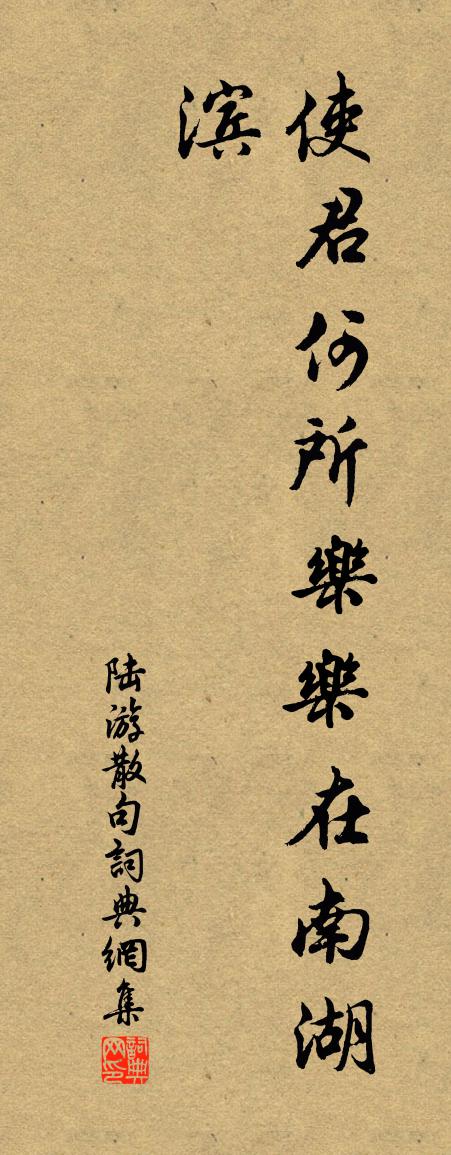 使君何所樂樂在南湖
滨
陆游散句詞典網集
詞典网印